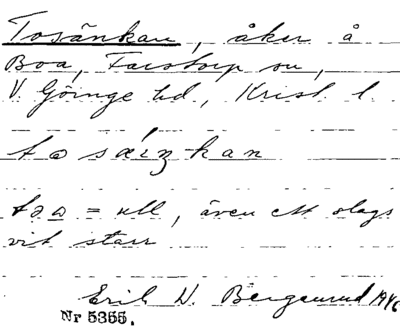 Tosänkan, åker å
Boa, Farstorp sn,
V. Göinge hd., Krist. l.
tosäiŋkan
= ull, även ett slags
vit starr
Erik W. 1946
Nr 5355.